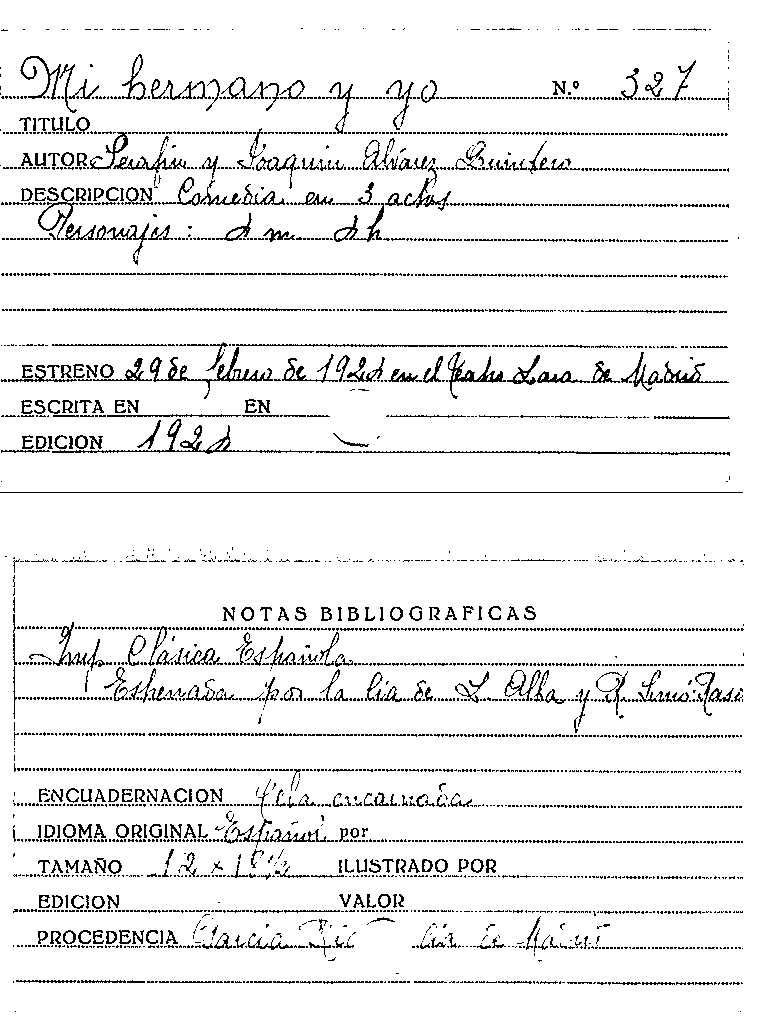 Mi hermano y yo N.º 327
TITULO
AUTOR Serafin y Joaquin Alvarez Quintero
DESCRIPCION Comedia en 3 actos
Personajes: 4 m. 4 h
ESTRENO 29 de febrero de 1924 en el Teatro Lara de Madrid
ESCRITA EN EN
EDICION 1924
NOTAS BIBLIOGRAFICAS
Imp Clásica Española
Estrenada por la Cia de L Alba y R. Simó-Raso
ENCUADERNACION Tela encarnada
IDIOMA ORIGINAL Español por
TAMAÑO 12 x ILUSTRADO POR
EDICION VALOR
PROCEDENCIA Garcia Rico Cia de Madrid